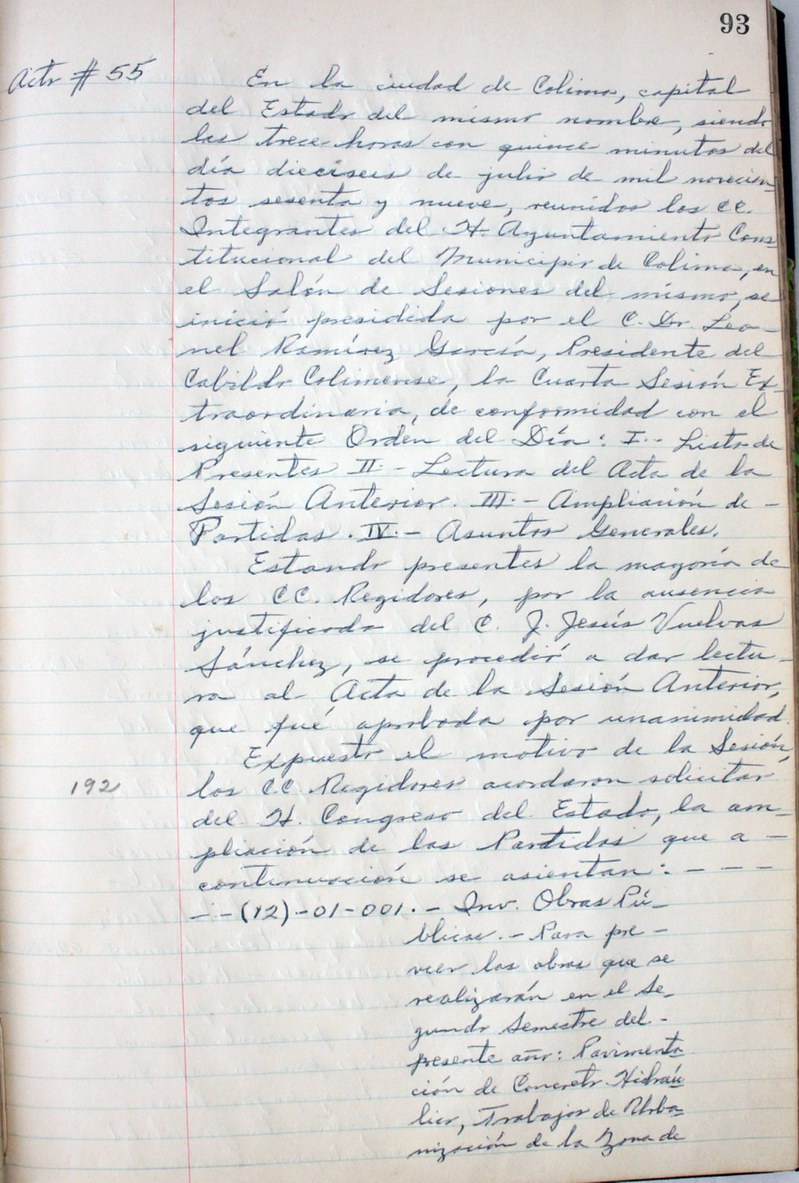 93
Acta # 55
En la ciudad de Colima, capital
del Estado del mismo nombre, siendo
las trece horas con quince minutos del
día dieciseis de julio de mil novecien
tos sesenta y nueve, reunidos los CC.
Integrantes del H. Ayuntamiento Cons
titucional del Municipio de Colima, en
el Salón de Sesiones del mismo, se
inició presidida por el C. Dr. Leo-
nel Ramírez García, Presidente del
Cabildo Colimense, la Cuarta Sesión Ex-
traordinaria, de conformidad con el
siguiente Orden del Día: I.- Lista de
Presentes II.- Lectura del Acta de la
Sesión Anterior. III.- Ampliación de -
Partidas. IV.- Asuntos Generales.
Estando presentes la mayoría de
los CC. Regidores, por la ausencia
justificada del C. J. Jesús Vuelvas
Sánchez, se procedió a dar lectu-
ra al Acta de la Sesión Anterior,
que fué aprobada por unanimidad.
Expuesto el motivo de la Sesión,
192
los CC. Regidores acordaron solicitar
del H. Congreso del Estado, la am-
pliación de las Partidas que a -
continuación se asientan: - - -
- - (12)-01-001. - Inv. Obras Pú-
blicas. - Para pre-
veer las obras que se
realizarán en el Se-
gundo Semestre del -
presente año: Pavimenta
ción de Concreto Hidráu
lico, Trabajos de Urba-
nización de la Zona de